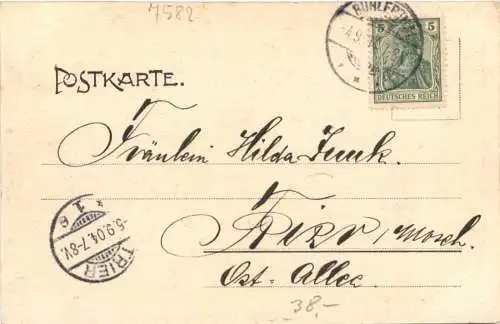 7582
5 5
DEUTSCHES REICH
POSTKARTE.
Fräulein Hilda Junk.
Trier, Mosel.
Ost-Allee
TRIER
-5.9.04.7-8V.
* 1 e
38,-